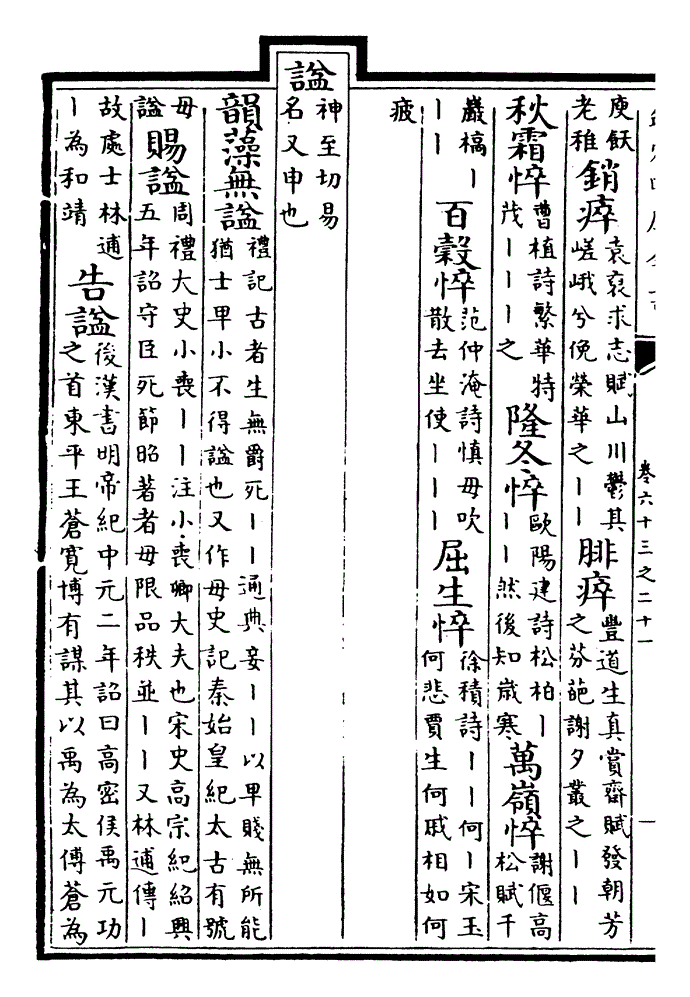 卷六十三之二十一
一
庾飫
老稚
銷瘁
袁裒求志賦山川鬱其
嵯峨兮俛榮華之丨丨
腓瘁
豐道生真賞齋賦發朝芳
之芬葩謝夕叢之丨丨
秋霜悴
曹植詩繁華特
茂丨丨丨之
隆冬悴
歐陽建詩松柏丨
丨丨然後知歲寒
萬嶺悴
謝偃高
松賦千
巖槁丨
丨丨
百穀悴
范仲淹詩慎毋吹
散去坐使丨丨丨
屈生悴
徐積詩丨丨何丨宋玉
何悲賈生何戚相如何
疲
諡
神至切易
名又申也
韻藻無諡
禮記古者生無爵死丨丨通典妾丨丨以卑賤無所能
猶士卑小不得諡也又作毋史記秦始皇紀太古有號
毋
諡
賜諡
周禮大史小喪丨丨注小喪卿大夫也宋史高宗紀紹興
五年詔守臣死節昭著者毋限品秩並丨丨又林逋傳丨
故處士林逋
丨為和靖
告諡
後漢書明帝紀中元二年詔曰高密侯禹元功
之首東平王蒼寬博有謀其以禹為太傅蒼為